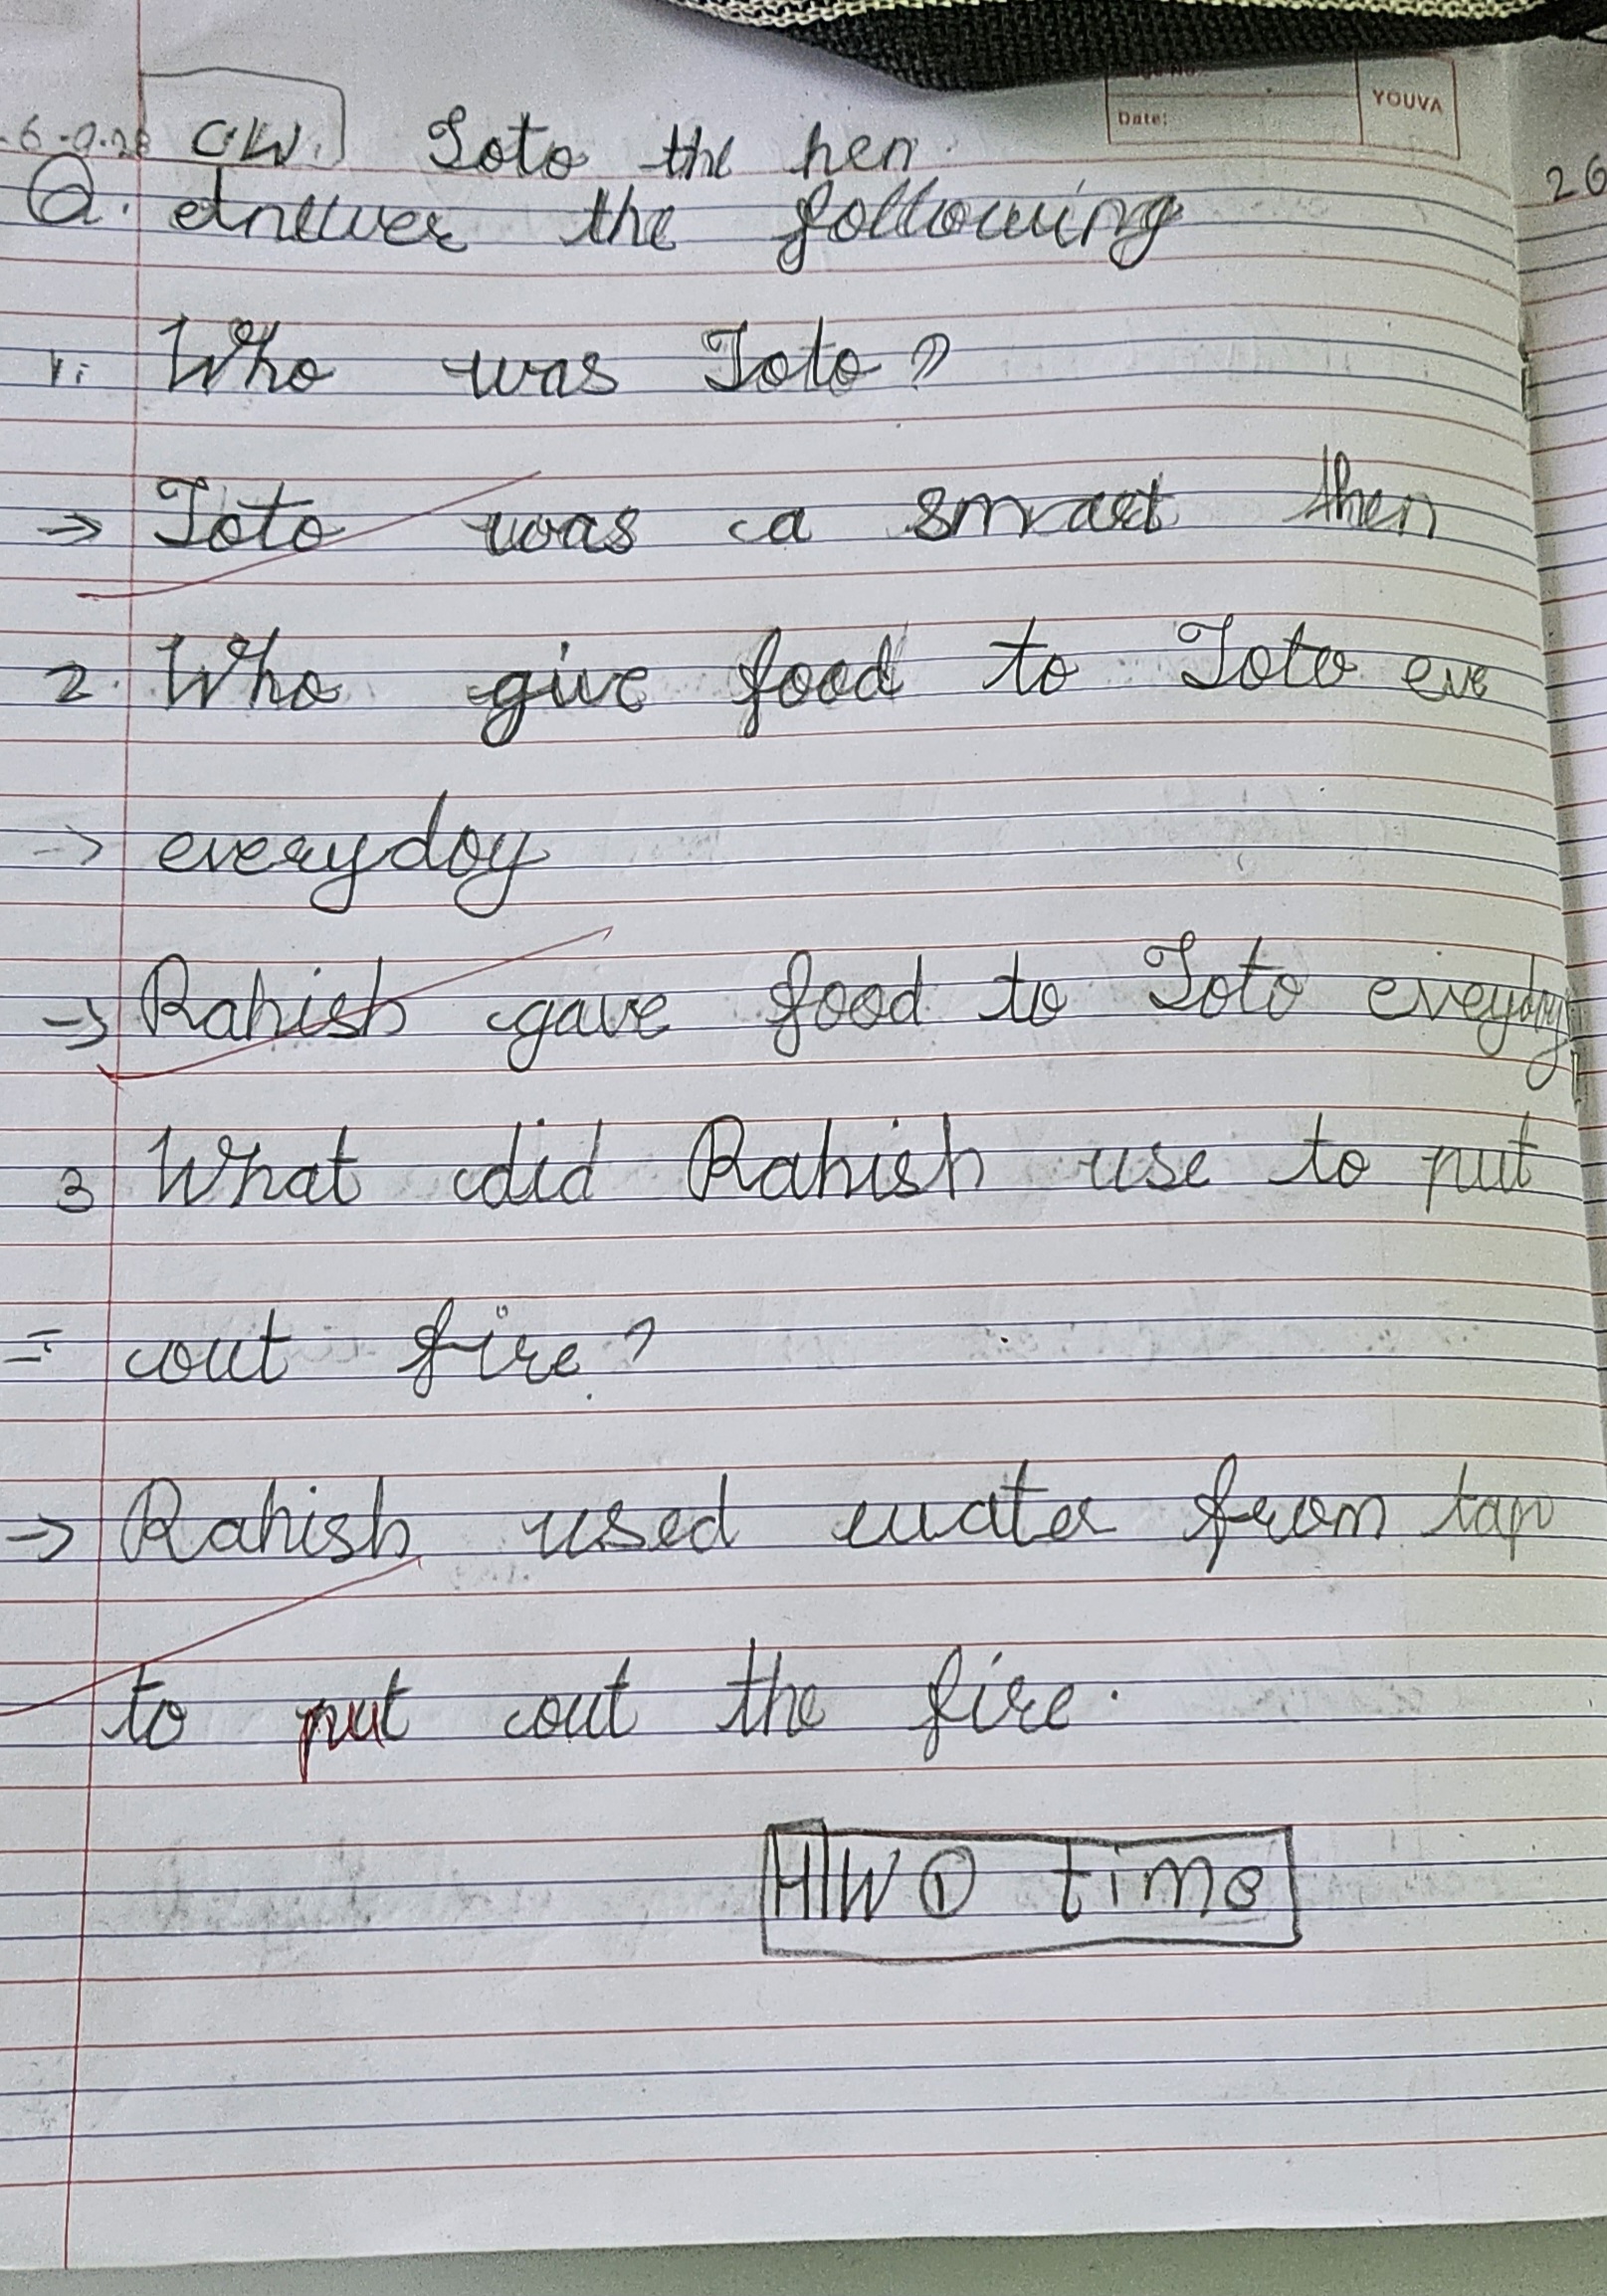 Date: YOUVA
C.W. Toto the hen
26
Q. Answer the following
1. Who was Toto?
→ Toto was a smart then
2. Who give food to Toto eve
→ everydoy
→ Rahish gave food to Toto eveyday
3 What did Rahish use to put
= out fire?
→ Rahish used water from tap
to put out the fire.
HW ① time